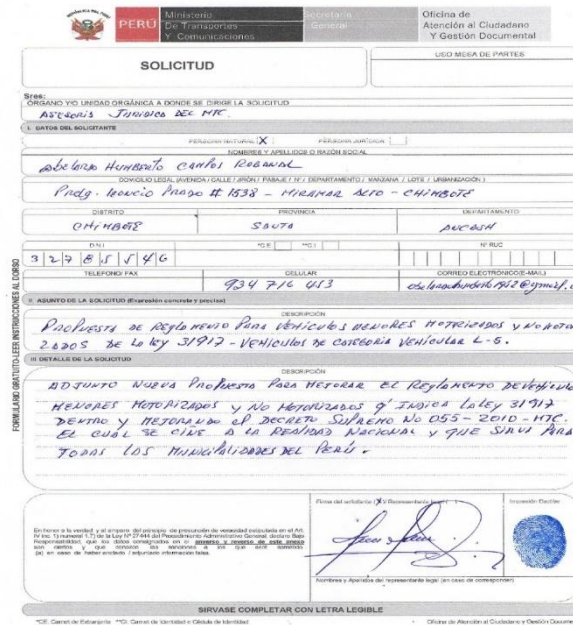 PERÚ
Ministerio
De Transportes
Y Comunicaciones
Secretaría
General
Oficina de
Atención al Ciudadano
Y Gestión Documental
SOLICITUD
USO MESA DE PARTES
Sres:
ÓRGANO Y/O UNIDAD ORGÁNICA A DONDE SE DIRIGE LA SOLICITUD
ASESORIS JURIDICA DEL MTC
I. DATOS DEL SOLICITANTE
PERSONA NATURAL X PERSONA JURÍDICA
NOMBRES Y APELLIDOS O RAZÓN SOCIAL
Abelardo HUMBERTO CAMPOS
DOMICILIO LEGAL (AVENIDA / CALLE / JIRÓN / PASAJE / N° / DEPARTAMENTO / MANZANA / LOTE / URBANIZACIÓN )
Prolg. Leoncio PRADO # 1538 - MIRAMAR ALTO - CHIMBOTE
DISTRITO PROVINCIA DEPARTAMENTO
CHIMBOTE SANTA ANCASH
D.N.I. *C.E. **C.I. N° RUC
3 2 7 8 5 5 4 6
TELEFONO/ FAX CELULAR CORREO ELECTRÓNICO(E-MAIL)
934 716 453
II. ASUNTO DE LA SOLICITUD (Expresión concreta y precisa)
DESCRIPCIÓN
PROPUESTA DE REGLAMENTO PARA VEHICULOS MENORES MOTRIZADOS Y NO MOTO
ZADOS DE LA LEY 31917 - VEHICULOS DE CATEGORIA VEHICULAR L-5.
III DETALLE DE LA SOLICITUD
DESCRIPCIÓN
ADJUNTO NUEVA PROPUESTA PARA MEJORAR EL REGLAMENTO DE VEHICULO
MENORES MOTORIZADOS Y NO MOTORIZADOS q' INDICA LA LEY 31917
DENTRO Y MEJORANDO el DECRETO SUPREMO NO 055-2010-MTC.
EL CUAL SE CIÑE A LA REALIDAD NACIONAL Y QUE SIRVA PARA
TODAS LAS MUNICIPALIDADES DEL PERÚ.
FORMULARIO GRATUITO-LEER INSTRUCCIONES AL DORSO
En honor a la verdad y al amparo del principio de presunción de veracidad estipulada en el Art.
IV inc. 1) numeral 1.7) de la Ley N° 27444 del Procedimiento Administrativo General, declaro Bajo
Responsabilidad, que los datos consignados en el anverso y reverso de este anexo
son ciertos y que conozco las sanciones a los que seré sometido
(a) en caso de haber anotado / adjuntado información falsa.
Firma del solicitante (X) Representante legal ( )
Impresión Dactilar
Nombres y Apellidos del representante legal (en caso de corresponder)
SIRVASE COMPLETAR CON LETRA LEGIBLE
*CE. Carnet de Extranjería **CI. Carnet de Identidad o Cédula de Identidad
Oficina de Atención al Ciudadano y Gestión